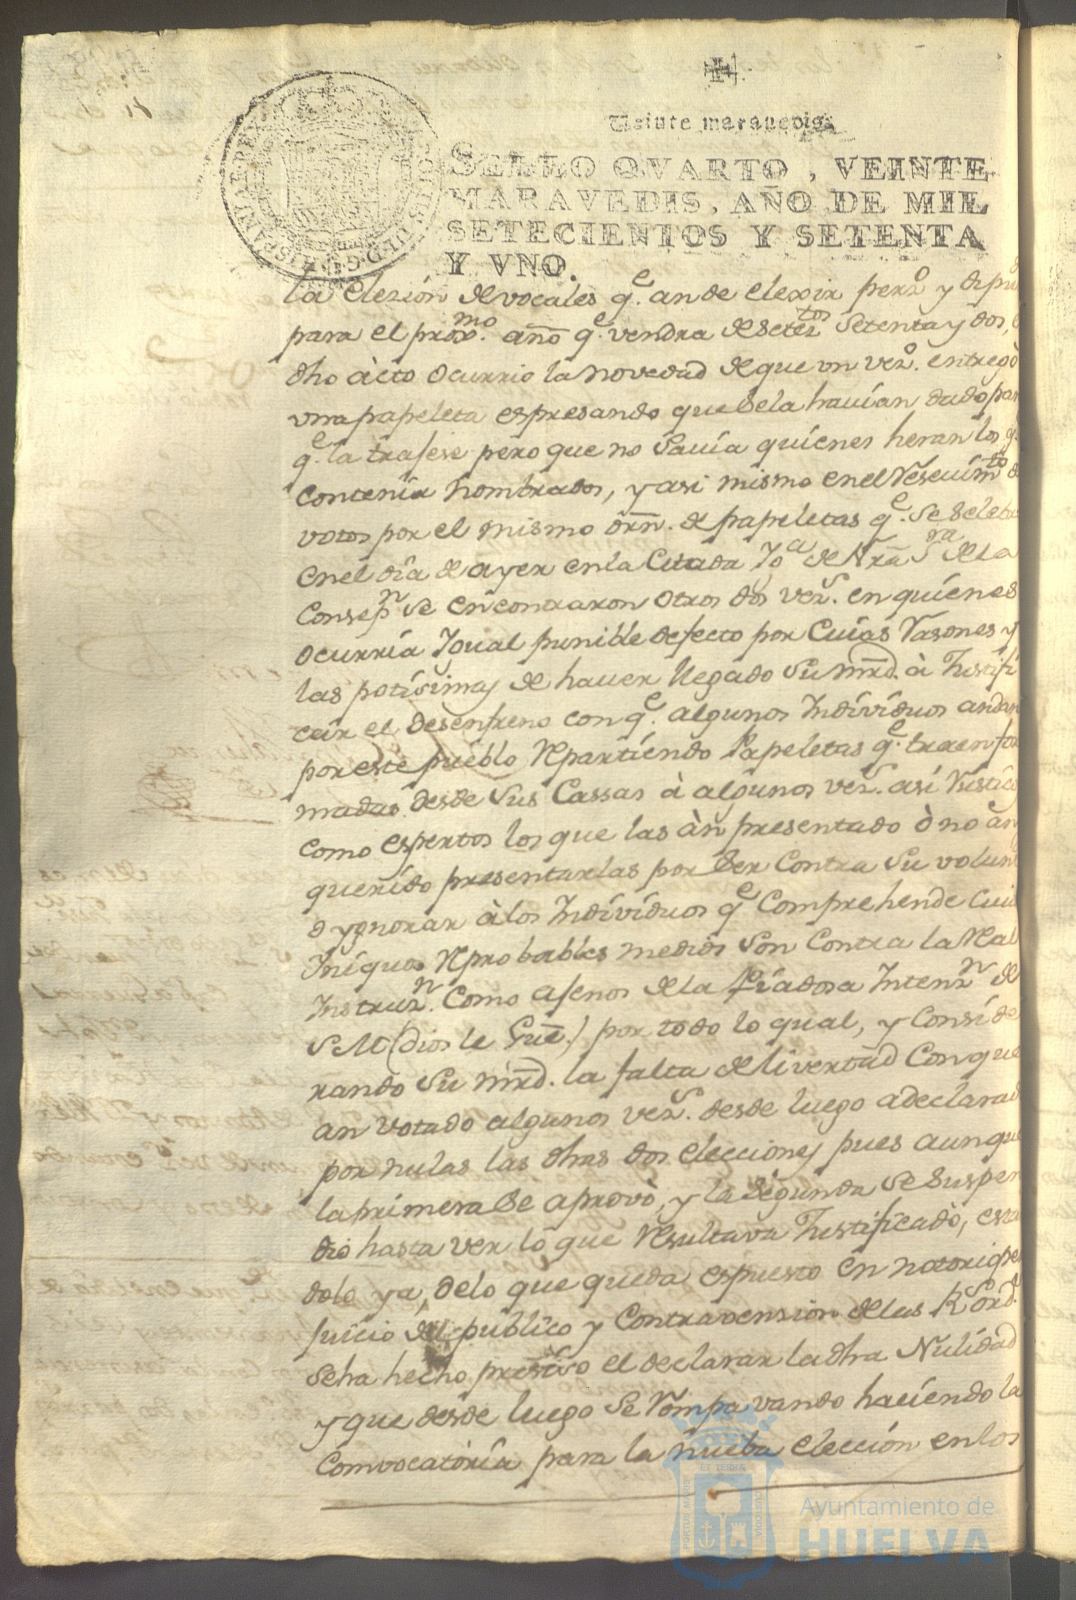 Veinte maravedis.
SELLO QVARTO, VEINTE
MARAVEDIS, AÑO DE MIL
SETECIENTOS Y SETENTA
Y VNO.
la elezión de vocales q.e an de elexir perz.o y dipu
para el prox.mo año q.e vendra de setez.tos setenta y dos,
dho àcto ocurrio la novedad de que un vez.o entregò
una papeleta espresando que se la havian dado par
q.e la trajese pero que no savía quiénes heran los q.e
contenía nombrados, y asi mismo en el Resevim.to de
votos por el mismo orñ. de papeletas q.e se selebr
en el día de ayer en la citada Yg.a de Nrã S.ra de la
Consep.n se encontraron otros dos vez.s en quiénes
ocurría Ygual punible defecto por cuías Rasones y
las potísimas de haver llegado su mrd. à Justifi
cár el desenfreno con q.e algunos Indivíduos andan
por este pueblo Repartiendo Papeletas q.e traen for
madas desde sus Cassas à algunos vez.s así Rústicos
como espertos los que las àn presentado ò no an
querído presentarlas por ser contra su volunt
o ygnorar à los Indivíduos q.e comprehende cuio
Iniquos Reprobables medios son contra la Real
Instruz.n como ajenos de la Píadosa Intenz.n de
S M (Dios le Gue.) por todo lo qual, y consíde
rando su mrd. la falta de livertad con que
an votado algunos vez.s desde luego a declarad
por nulas las dhas dos elecciones pues aunque
la primera se aprovò, y la segunda se suspen
dió hasta ver lo que Resultava Justificado, están
dolo ya, de lo que queda espuesto en notorio per
juicio del público y contravensíon de las R.s Ord.s
se ha hecho presíso el declarar la dha Nulidad
y que desde luego se Rompa vando hacíendo la
Convocatória para la nueba elección en los
Ayuntamiento de
HUELVA